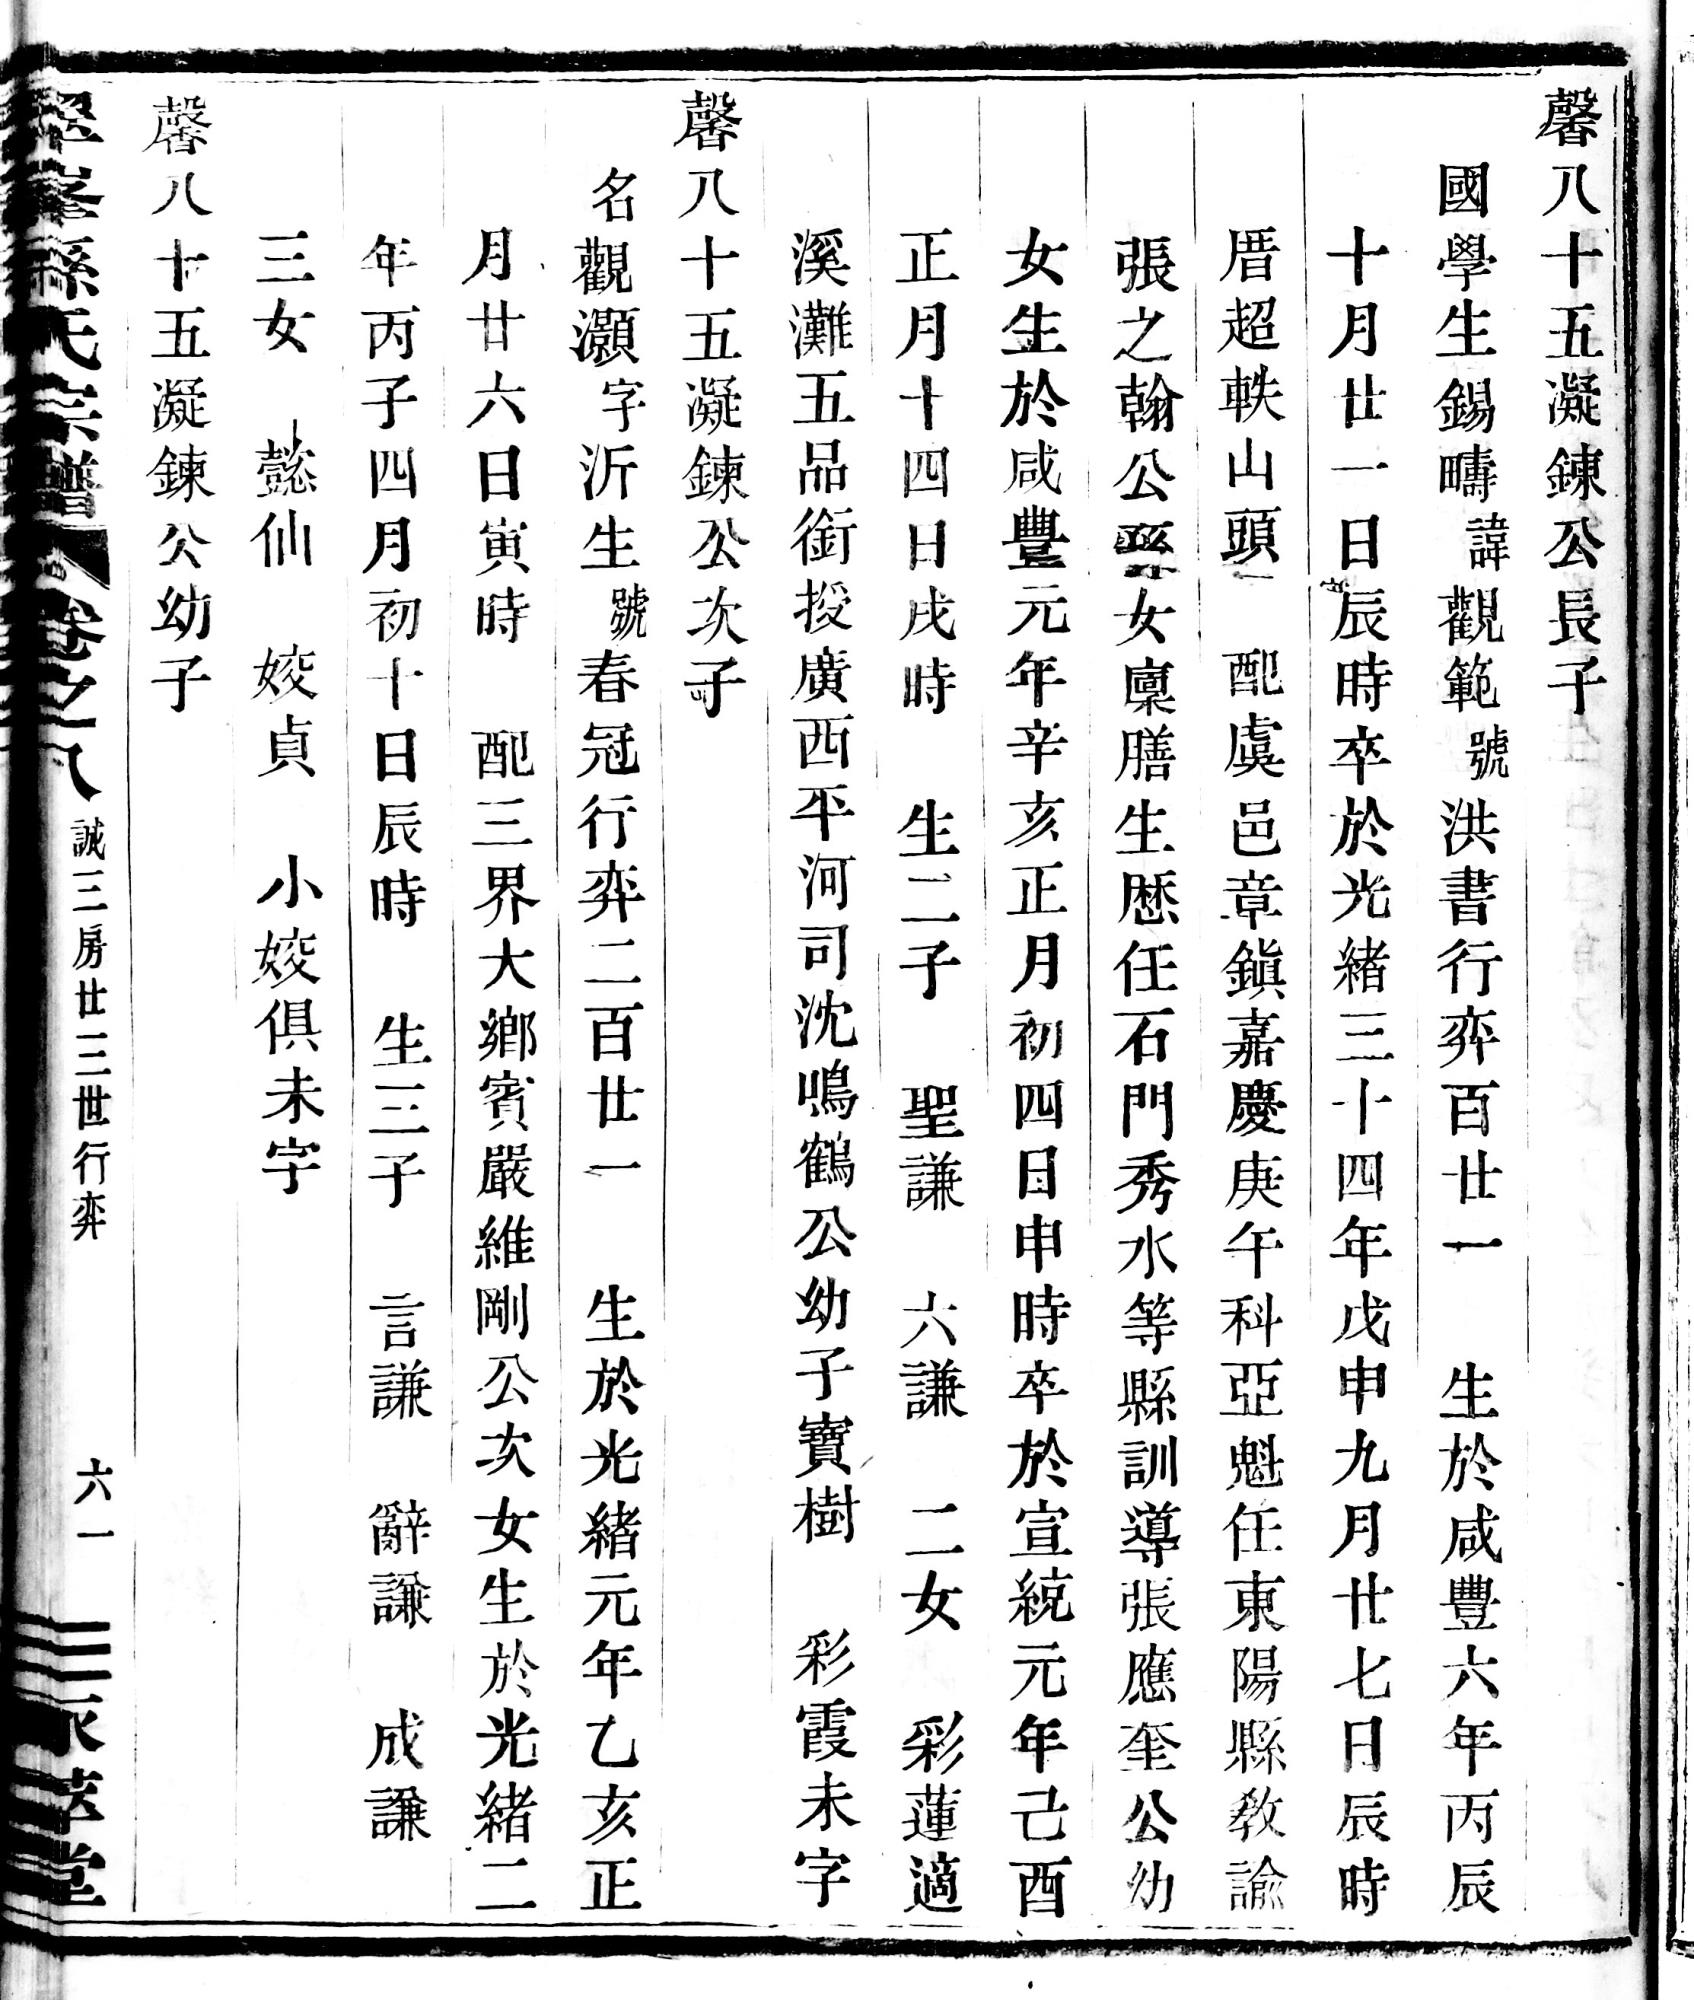 馨八十五凝鍊公長子
國學生錫疇諱觀範號洪書行弈百廿一　生於咸豐六年丙辰
十月廿一日辰時卒於光緒三十四年戊申九月廿七日辰時
厝超軼山頭　配虞邑章鎭嘉慶庚午科亞魁任東陽縣敎諭
張之翰公女廩膳生歷任石門秀水等縣訓導張應奎公幼
女生於咸豐元年辛亥正月初四日申時卒於宣統元年己酉
正月十四日戌時　生二子　聖謙　六謙　二女　彩蓮適
溪灘五品銜授廣西平河司沈鳴鶴公幼子寶樹　彩霞未字
馨八十五凝鍊公次子
名觀灝字沂生號春冠行弈二百廿一　生於光緒元年乙亥正
月廿六日寅時　配三界大鄉賓嚴維剛公次女生於光緒二
年丙子四月初十日辰時　生三子　言謙　辭謙　成謙
三女　懿仙　姣貞　小姣俱未字
馨八十五凝鍊公幼子
孫氏宗譜　卷之八　誠三房廿三世行弈　六一　萃堂